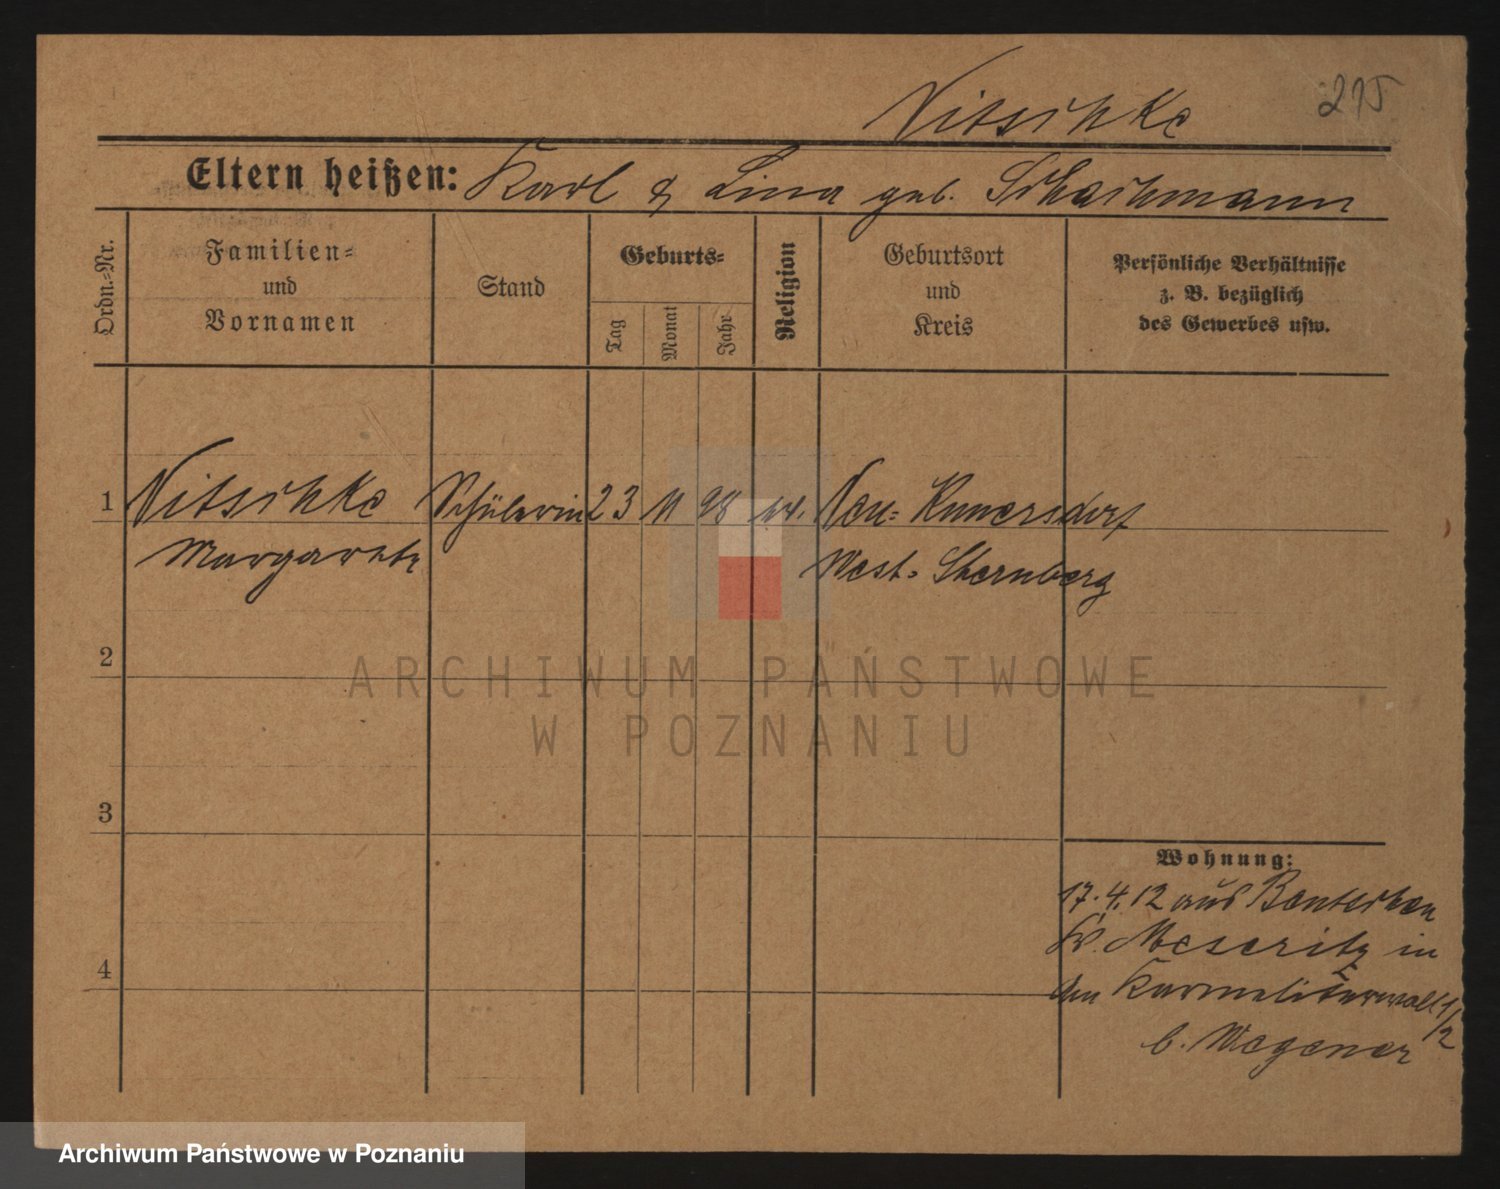 Nitschke
215
Eltern heißen: Karl & Lina geb. Schachmann
Ordn.-Nr.
Familien-
und
Vornamen
Stand
Geburts-
Tag
Monat
Jahr
Religion
Geburtsort
und
Kreis
Persönliche Verhältnisse
z. B. bezüglich
des Gewerbes usw.
1 Nitschke Schülerin 23 11 98 ev. Neu-Kunersdorf
Margarete West-Sternberg
2
3
4
Wohnung:
17.4.12 aus Bentschen
Kr. Meseritz in
Karmeliterwall 1/2
b. Wegener
ARCHIWUM PAŃSTWOWE
W POZNANIU
Archiwum Państwowe w Poznaniu